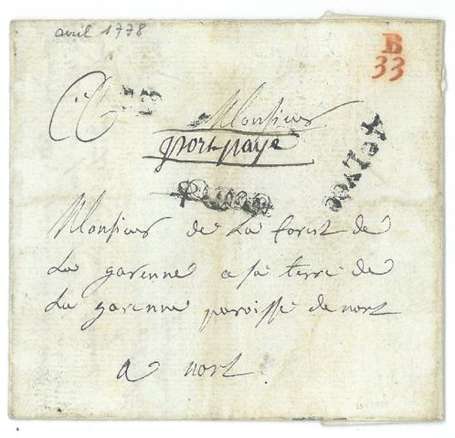 avril 1778
B
33
Monsieur
port payé
Monsieur de La forest de
La garenne a sa terre de
La garenne paroisse de nort
a nort.